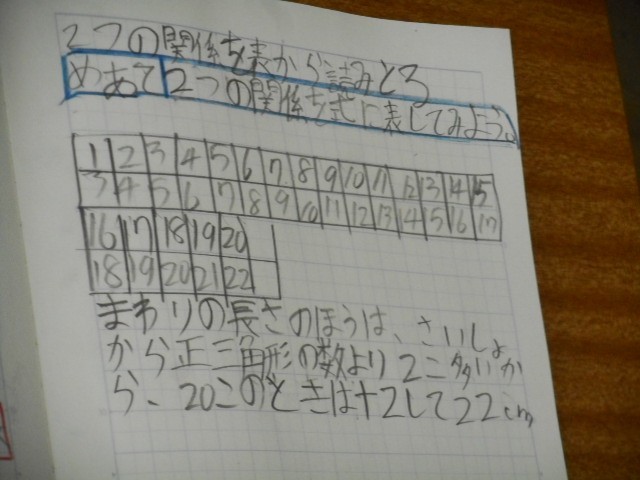 2つの関係を表から読みとろ
めあて 2つの関係を式に表してみよう。
1 2 3 4 5 6 7 8 9 10 11 12 13 14 15
3 4 5 6 7 8 9 10 11 12 13 14 15 16 17
16 17 18 19 20
18 19 20 21 22
まわりの長さのほうは、さいしょ
から正三角形の数より2こ多いか
ら、20このときは+2して22cm